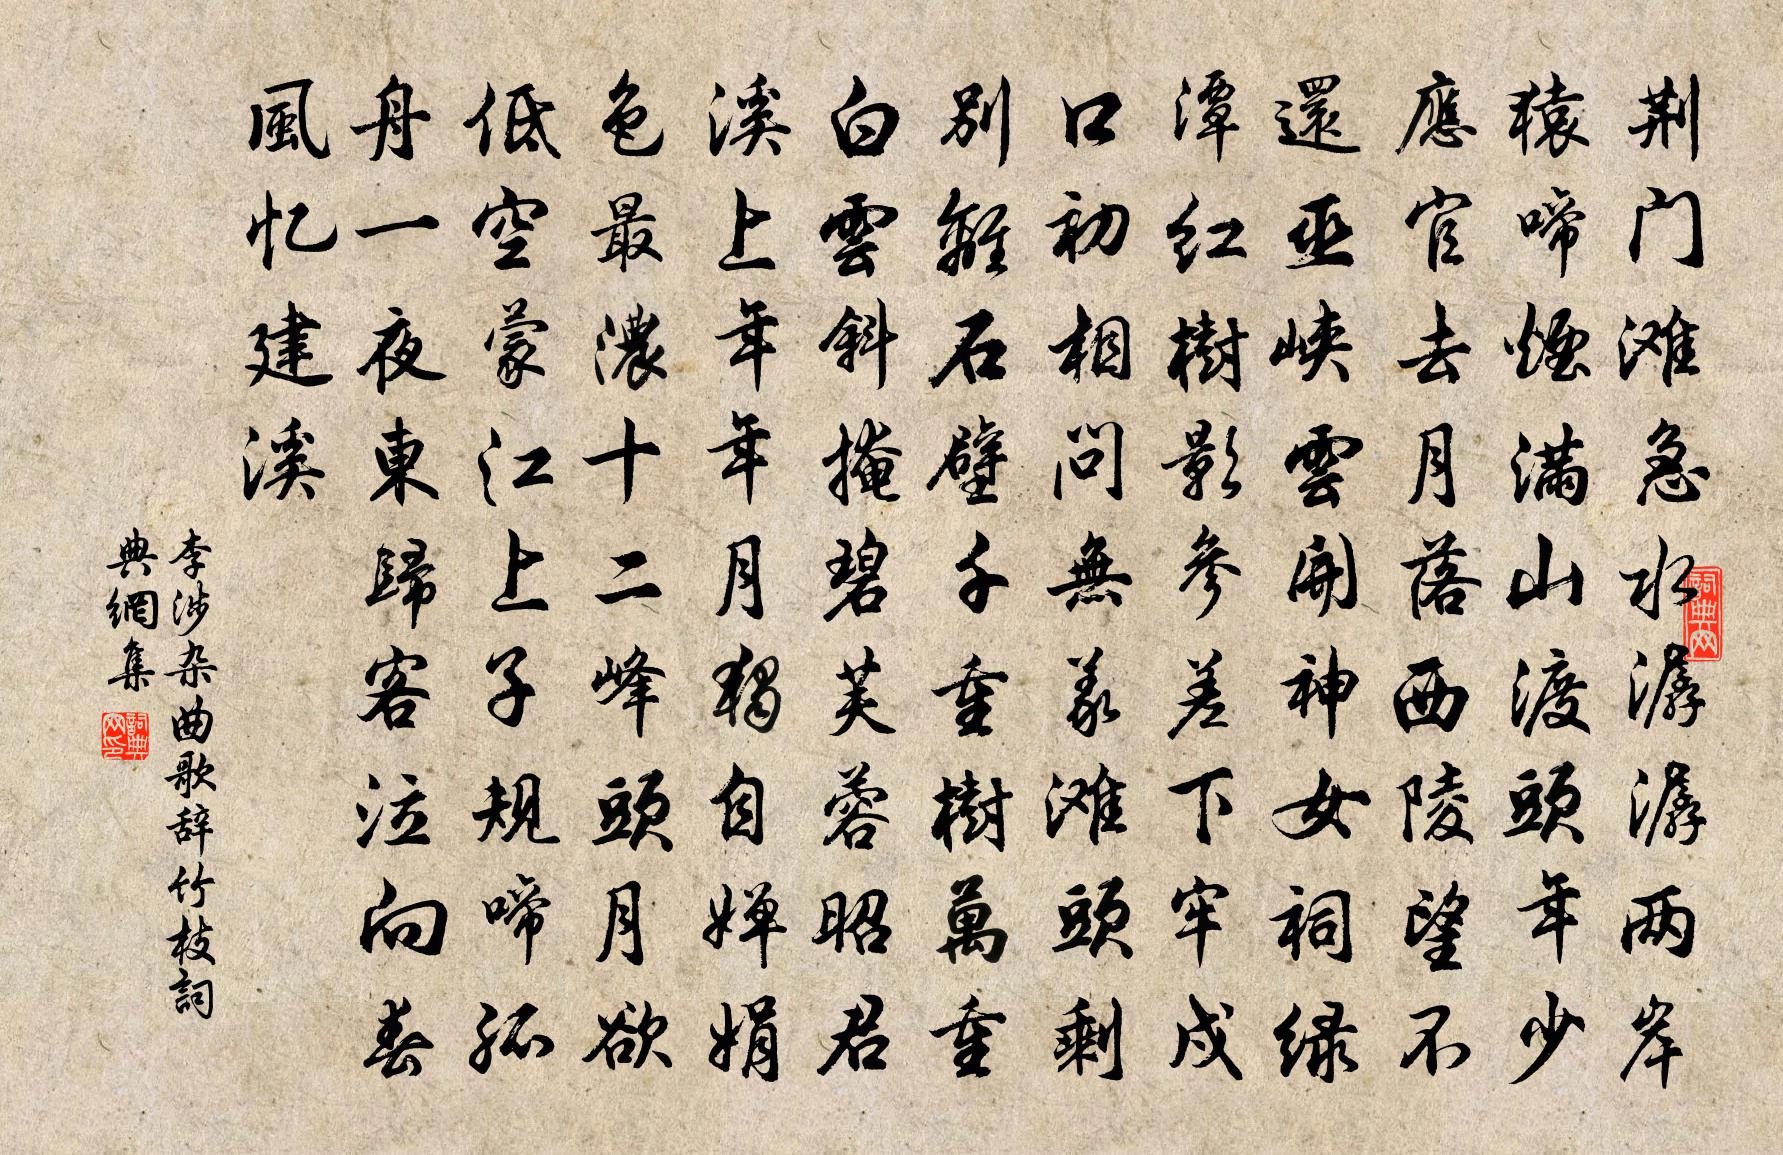 荆门滩急水潺潺两岸
猿啼煙满山渡頭年少
應官去月落西陵望不
還巫峡雲開神女祠绿
潭红樹影参差下牢戍
口初相問無義滩頭剩
别離石壁千重樹萬重
白雲斜掩碧芙蓉昭君
溪上年年月独自婵娟
色最濃十二峰頭月欲
低空蒙江上子規啼孤
舟一夜東歸客泣向春
風忆建溪
李涉杂曲歌辞竹枝詞
典網集
詞典网
詞典网印